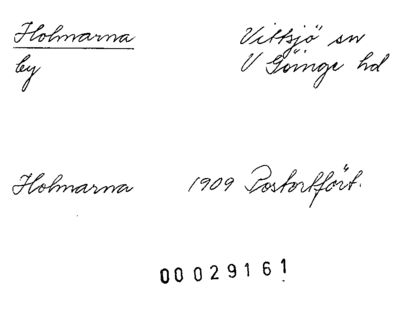 Holmarna Vittsjö sn
by V Göinge hd
Holmarna 1909 Postortför&#x74;.
00029161